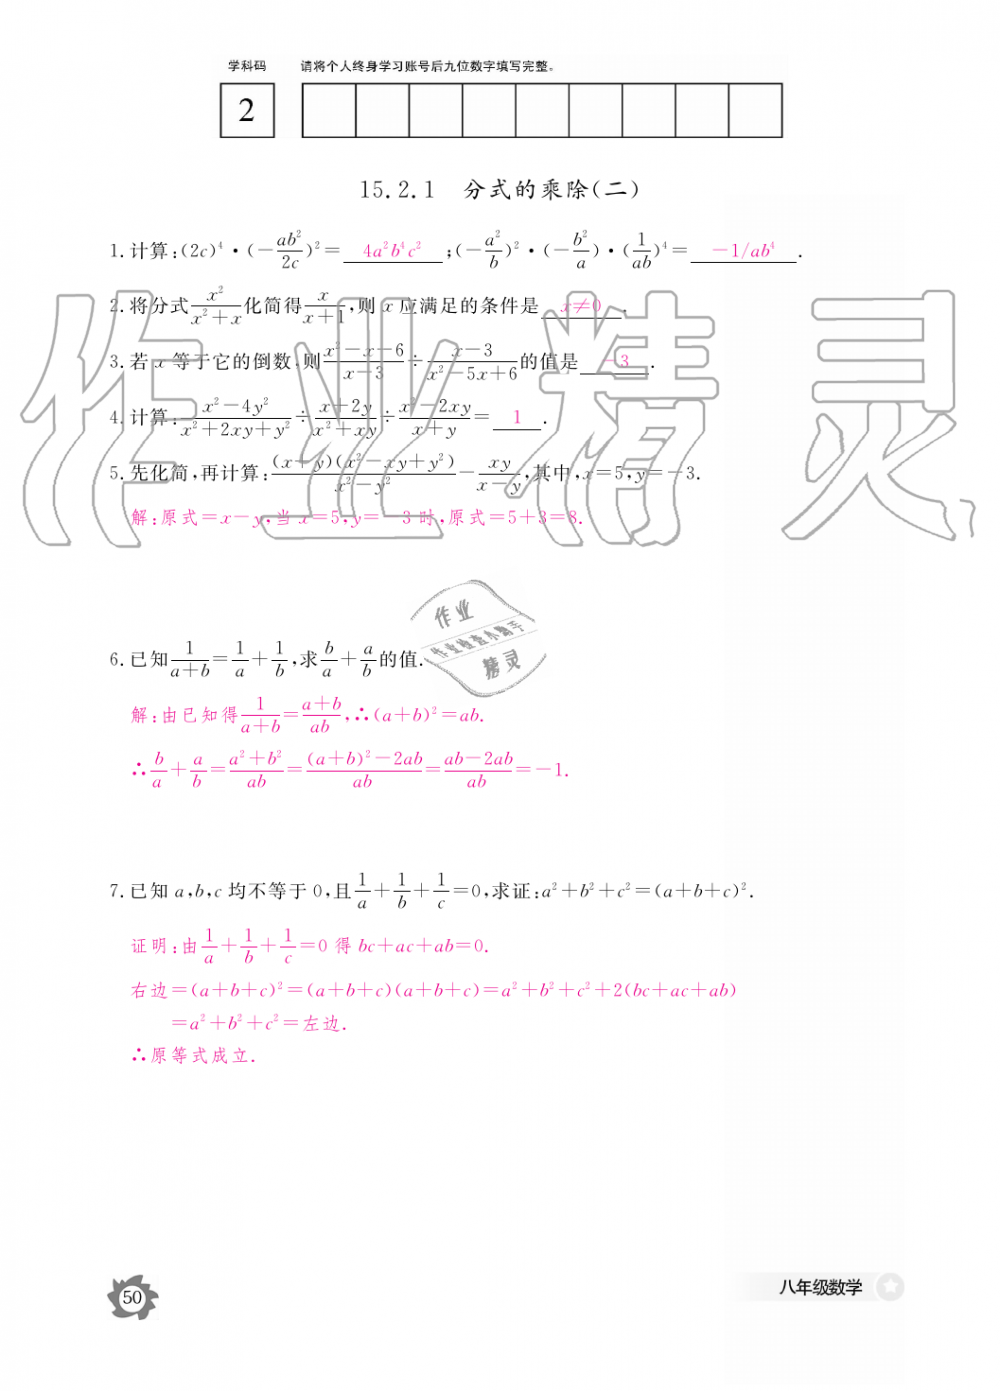 学科码 请将个人终身学习账号后九位数字填写完整。
2
15.2.1 分式的乘除(二)
1.计算:(2c)⁴·(-ab²/2c)²= 4a²b⁴c² ;(-a²/b)²·(-b²/a)·(1/ab)⁴= -1/ab⁴ .
2.将分式x²/(x²+x)化简得x/(x+1),则 x 应满足的条件是 x≠0 .
3.若 x 等于它的倒数,则(x²-x-6)/(x-3)÷(x-3)/(x²-5x+6)的值是 -3 .
4.计算:(x²-4y²)/(x²+2xy+y²)÷(x+2y)/(x²+xy)÷(x²-2xy)/(x+y)= 1 .
5.先化简,再计算:(x+y)(x²-xy+y²)/(x²-y²)-xy/(x-y),其中,x=5,y=-3.
解:原式=x-y,当 x=5,y=-3 时,原式=5+3=8.
6.已知1/(a+b)=1/a+1/b,求b/a+a/b的值.
解:由已知得1/(a+b)=(a+b)/ab,∴(a+b)²=ab.
∴b/a+a/b=(a²+b²)/ab=((a+b)²-2ab)/ab=(ab-2ab)/ab=-1.
7.已知 a,b,c 均不等于 0,且1/a+1/b+1/c=0,求证:a²+b²+c²=(a+b+c)².
证明:由1/a+1/b+1/c=0 得 bc+ac+ab=0.
右边=(a+b+c)²=(a+b+c)(a+b+c)=a²+b²+c²+2(bc+ac+ab)
=a²+b²+c²=左边.
∴原等式成立.
作业精灵
作业
作业检查小助手
精灵
50
八年级数学